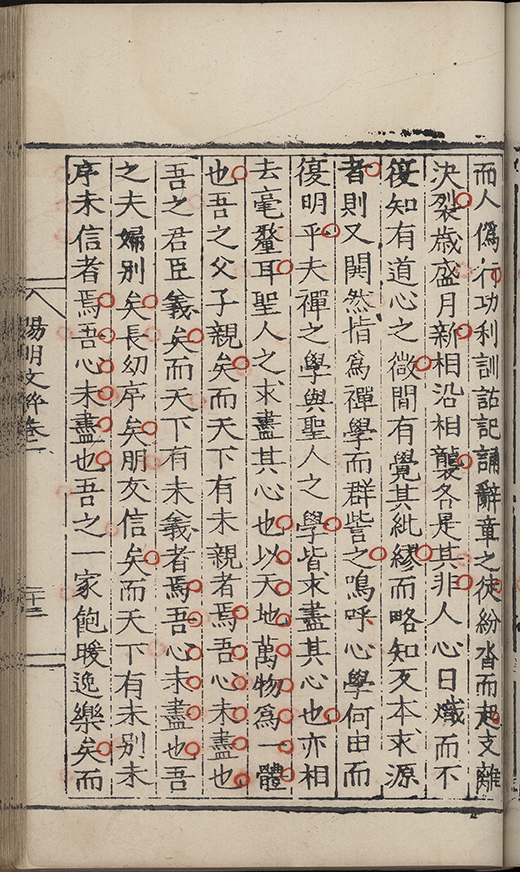 而人僞行功利訓詁記誦辭章之徒紛沓而起支離
決裂歲盛月新相沿相襲各是其非人心日熾而不
復知有道心之微間有覺其紕繆而略知反本求源
者則又閧然指爲禪學而群訾之嗚呼心學何由而
復明乎夫禪之學與聖人之學皆求盡其心也亦相
去毫釐耳聖人之求盡其心也以天地萬物爲一體
也吾之父子親矣而天下有未親者焉吾心未盡也
吾之君臣義矣而天下有未義者焉吾心未盡也吾
之夫婦別矣長幼序矣朋友信矣而天下有未別未
序未信者焉吾心未盡也吾之一家飽暖逸樂矣而
陽明文粹卷一
二十三